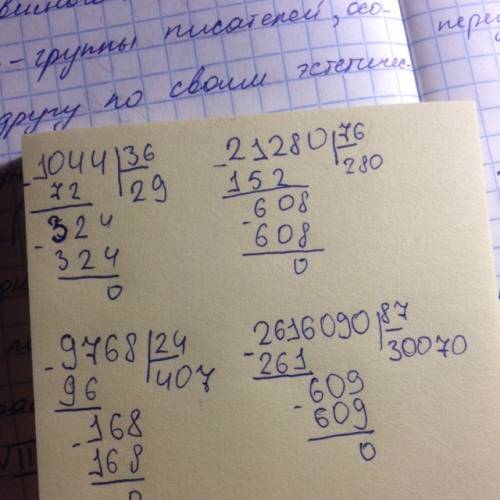 - группы писателей, осо-
другу по своим эстетичес-
1044 | 36
- 72 29
324
- 324
0
21280 | 76
- 152 280
608
- 608
0
9768 | 24
- 96 407
168
- 168
0
2616090 | 87
- 261 30070
609
- 609
0
VII